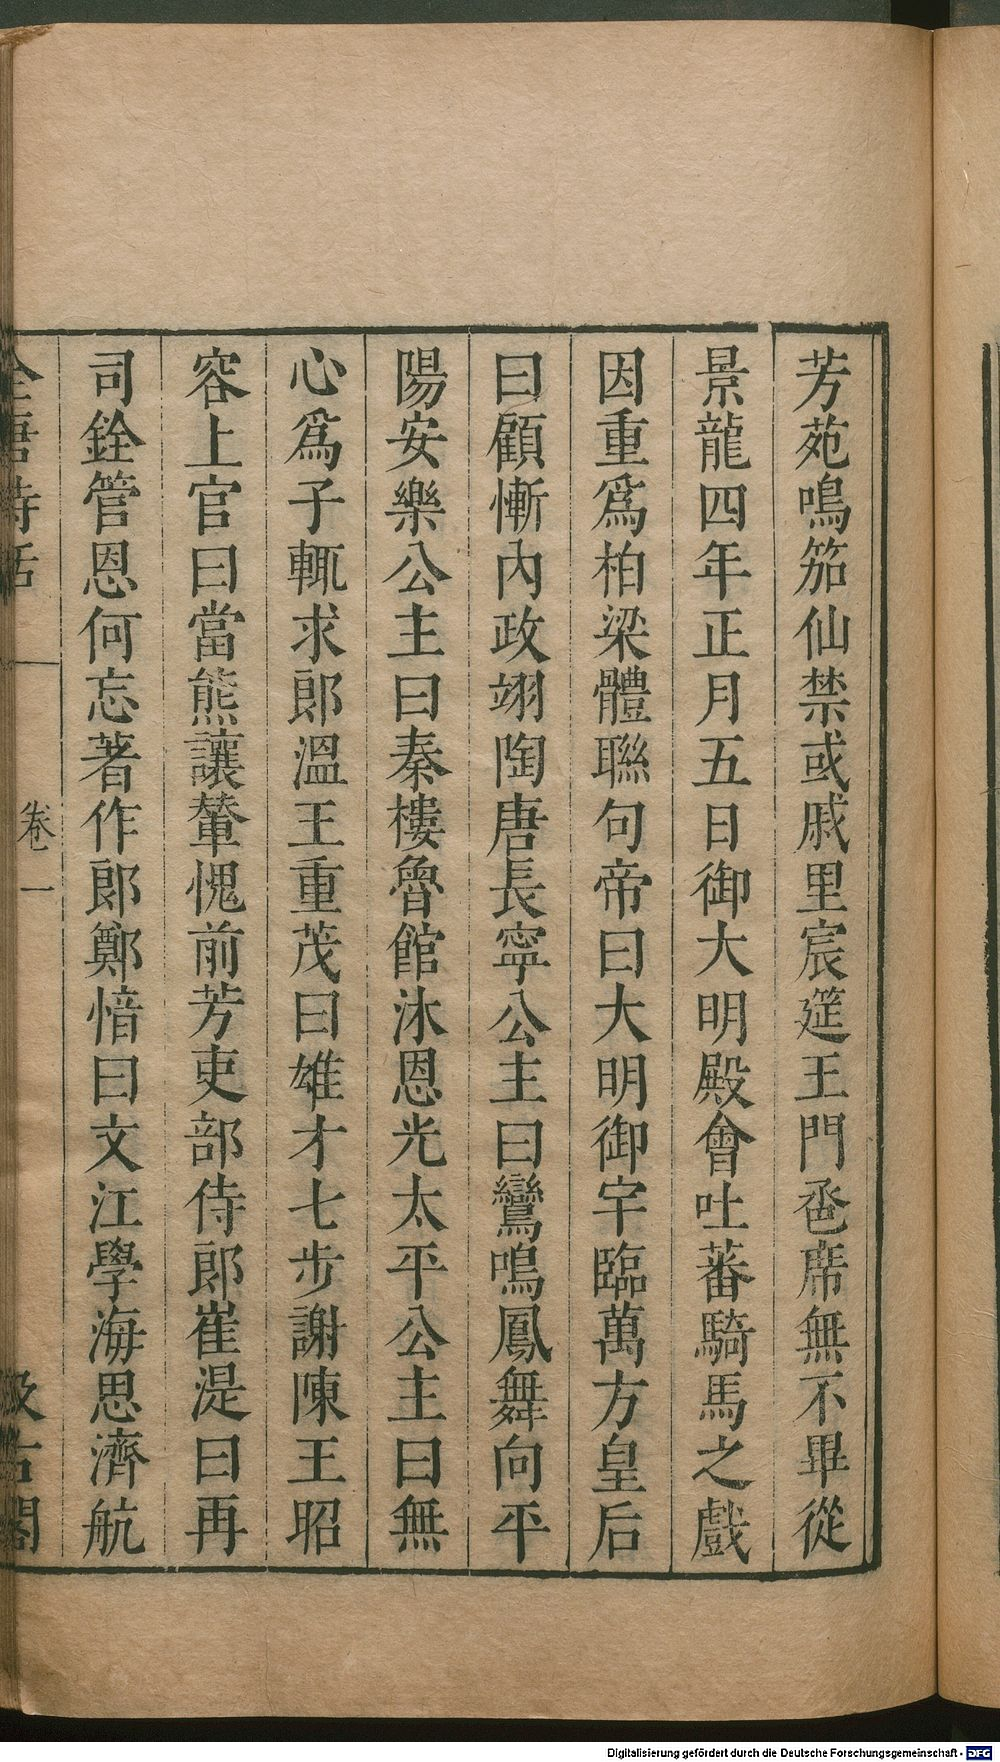 芳苑鳴笳仙禁或戚里宸筵王門巹席無不畢從
景龍四年正月五日御大明殿會吐蕃騎馬之戲
因重爲柏梁體聯句帝曰大明御宇臨萬方皇后
曰顧慚內政翊陶唐長寧公主曰鸞鳴鳳舞向平
陽安樂公主曰秦樓魯館沐恩光太平公主曰無
心爲子輒求郎溫王重茂曰雄才七步謝陳王昭
容上官曰當熊讓輦愧前芳吏部侍郎崔湜曰再
司銓管恩何忘著作郎鄭愔曰文江學海思濟航
全唐詩話 卷一 汲古閣
Digitalisierung gefördert durch die Deutsche Forschungsgemeinschaft - DFG